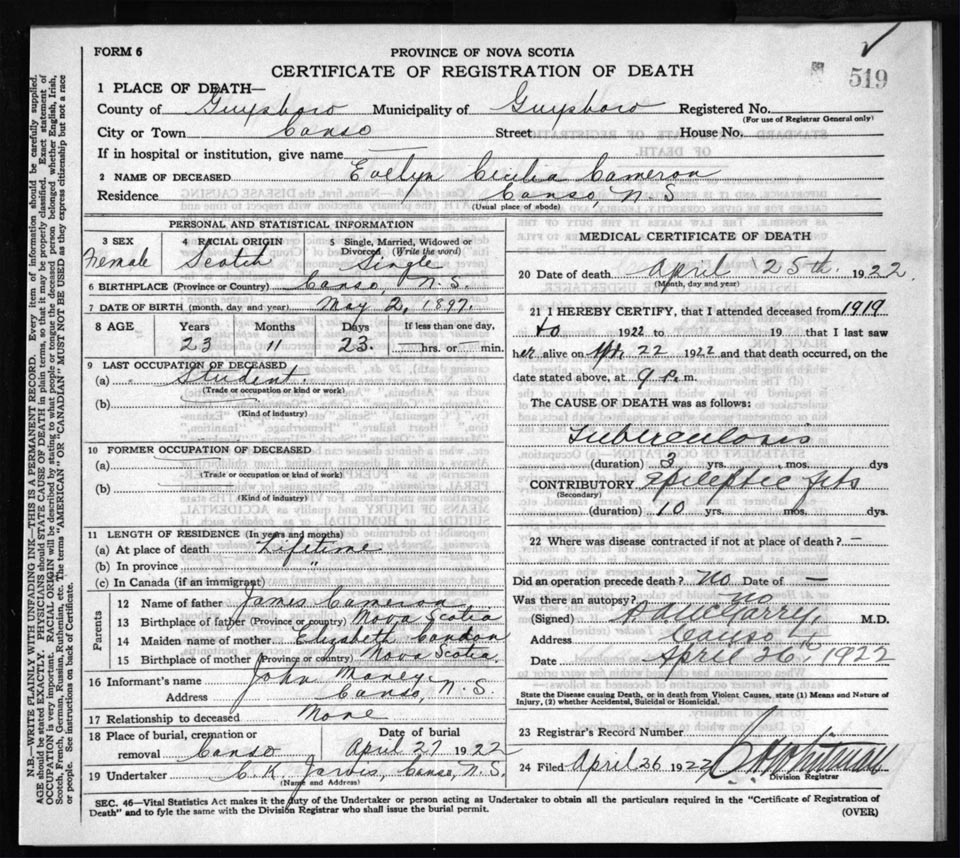 FORM 6
PROVINCE OF NOVA SCOTIA
CERTIFICATE OF REGISTRATION OF DEATH
519
1 PLACE OF DEATH—
County of Guysboro Municipality of Guysboro Registered No.
(For use of Registrar General only)
City or Town Canso Street House No.
If in hospital or institution, give name —
2 NAME OF DECEASED Evelyn Cecilia Cameron
Residence Canso, N.S
(Usual place of abode)
PERSONAL AND STATISTICAL INFORMATION
3 SEX Female
4 RACIAL ORIGIN Scotch
5 Single, Married, Widowed or Divorced (Write the word) Single
6 BIRTHPLACE (Province or Country) Canso, N.S.
7 DATE OF BIRTH (month, day and year) May 2, 1897.
8 AGE Years Months Days If less than one day,
23 11 23. hrs. or min.
9 LAST OCCUPATION OF DECEASED
(a) Student.
(Trade or occupation or kind or work)
(b)
(Kind of industry)
10 FORMER OCCUPATION OF DECEASED
(a)
(Trade or occupation or kind of work)
(b)
(Kind of industry)
11 LENGTH OF RESIDENCE (In years and months)
(a) At place of death Lifetime
(b) In province "
(c) In Canada (if an immigrant)
Parents
12 Name of father James Cameron
13 Birthplace of father (Province or country) Nova Scotia
14 Maiden name of mother Elizabeth Condon
15 Birthplace of mother (Province or country) Nova Scotia.
16 Informant's name John Maney
Address Canso, N.S.
17 Relationship to deceased None
18 Place of burial, cremation or removal Canso
Date of burial April 27 1922
19 Undertaker C.K. Jarvis, Canso, N.S.
(Name and Address)
MEDICAL CERTIFICATE OF DEATH
20 Date of death April 25th. 1922
(Month, day and year)
21 I HEREBY CERTIFY, that I attended deceased from 1919
to 1922 19 that I last saw
her alive on Apr. 22 1922 and that death occurred, on the
date stated above, at 9 P.m.
The CAUSE OF DEATH was as follows:
Tuberculosis
(duration) 3 yrs. mos. dys
CONTRIBUTORY Epileptic fits
(Secondary)
(duration) 10 yrs. mos. dys.
22 Where was disease contracted if not at place of death? —
Did an operation precede death? No Date of —
Was there an autopsy? No
(Signed) M.D.
Address Canso
Date April 26th, 1922
State the Disease causing Death, or in death from Violent Causes, state (1) Means and Nature of
Injury, (2) whether Accidental, Suicidal or Homicidal.
23 Registrar's Record Number
24 Filed April 26 1922
Division Registrar
SEC. 46—Vital Statistics Act makes it the duty of the Undertaker or person acting as Undertaker to obtain all the particulars required in the "Certificate of Registration of
Death" and to fyle the same with the Division Registrar who shall issue the burial permit.
(OVER)
N.B.—WRITE PLAINLY WITH UNFADING INK—THIS IS A PERMANENT RECORD. Every item of information should be carefully supplied.
AGE should be stated EXACTLY. PHYSICIANS should STATE CAUSE OF DEATH in plain terms, so that it may be properly classified. Exact statement of
OCCUPATION is very important. RACIAL ORIGIN will be described by stating to what people or tongue the deceased person belonged whether English, Irish,
Scotch, French, German, Russian, Ruthenian, etc. The terms "AMERICAN" OR "CANADIAN" MUST NOT BE USED as they express citizenship but not a race
or people. See instructions on back of Certificate.